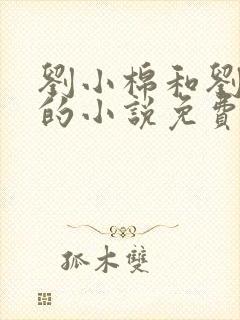 劉小棉和劉
的小說免費
孤木雙